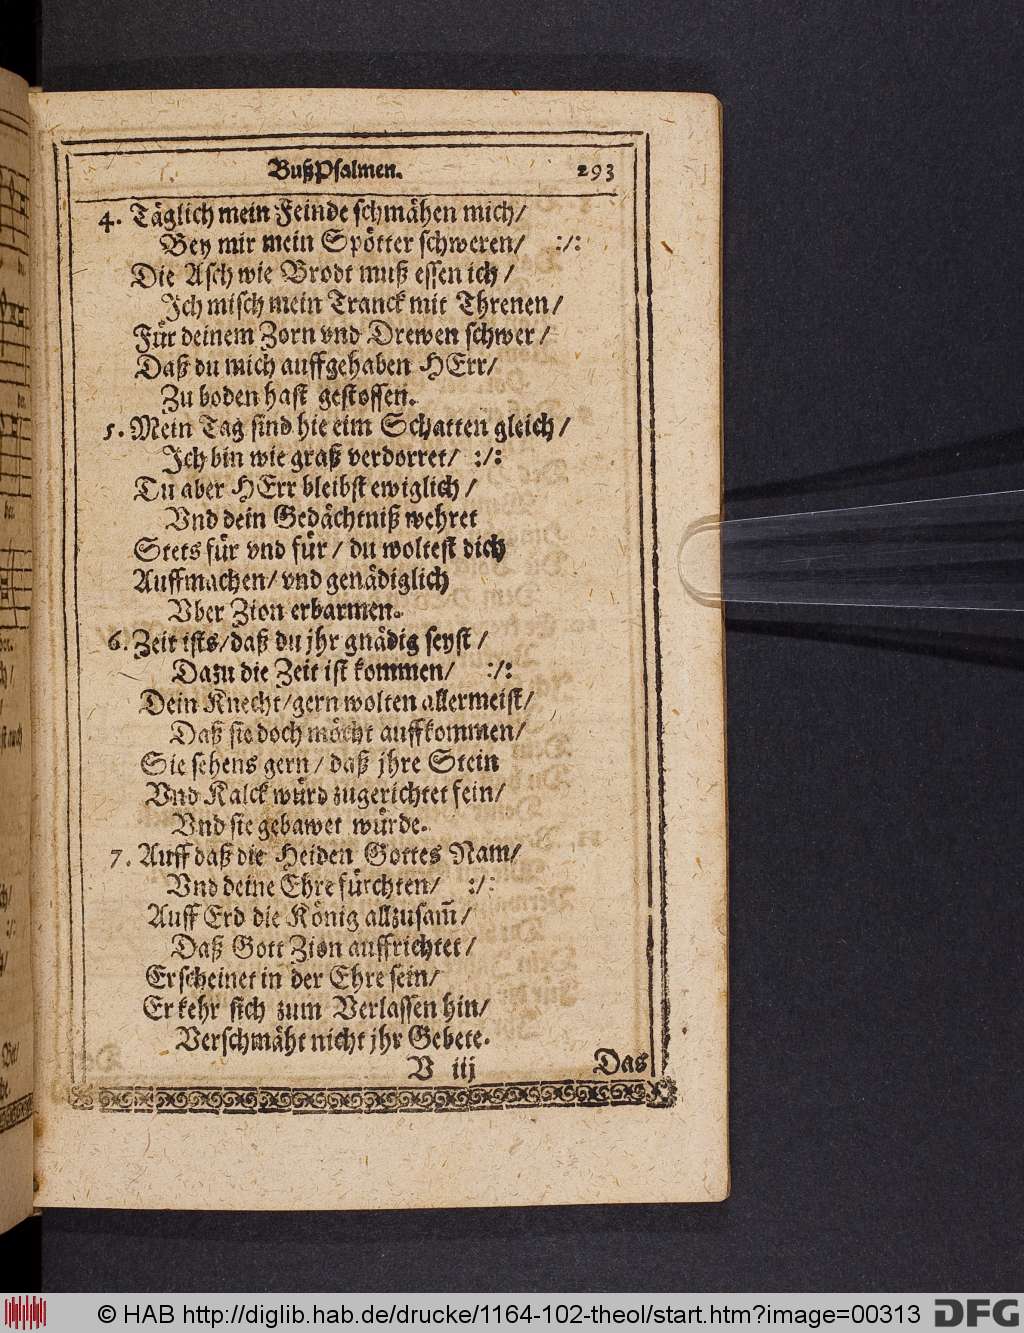 BußPsalmen. 293
4. Täglich mein Feinde schmähen mich/
Bey mir mein Spötter schweren/ :/:
Die Asch wie Brodt muß essen ich/
Ich misch mein Tranck mit Threnen/
Für deinem Zorn vnd Drewen schwer/
Daß du mich auffgehaben HErr/
Zu boden hast gestossen.
5. Mein Tag sind hie eim Schatten gleich/
Ich bin wie graß verdorret/ :/:
Du aber HErr bleibst ewiglich/
Vnd dein Gedächtniß wehret
Stets für vnd für/ du woltest dich
Auffmachen/ vnd genädiglich
Vber Zion erbarmen.
6. Zeit ists/ daß du jhr gnädig seyst/
Dazu die Zeit ist kommen/ :/:
Dein Knecht/ gern wolten allermeist/
Daß sie doch möcht auffkommen/
Sie sehens gern/ daß jhre Stein
Vnd Kalck würd zugerichtet fein/
Vnd sie gebawet würde.
7. Auff daß die Heiden Gottes Nam/
Vnd deine Ehre fürchten/ :/:
Auff Erd die König allzusam̃/
Daß Gott Zion auffrichtet/
Erscheinet in der Ehre sein/
Er kehr sich zum Verlassen hin/
Verschmäht nicht jhr Gebete.
V iij Das
© HAB http://diglib.hab.de/drucke/1164-102-theol/start.htm?image=00313 DFG